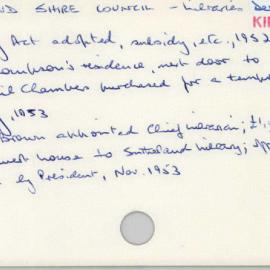 SHIRE COUNCIL – Libraries De
KI
Act adopted, subsidy, etc., 1952
residence, next door to
Chambers purchased for a temp
, 1953
Brown appointed Chief Librarian; £1,
house to Sutherland Library; op
by President, Nov. 1953